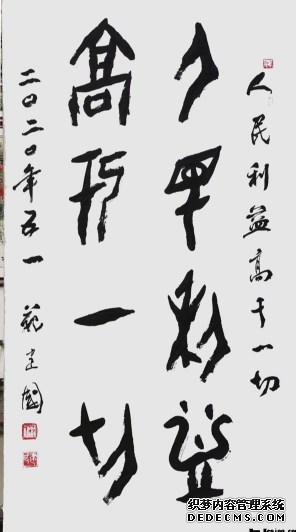 人民利益高于一切
人民利益
高于一切
二〇二〇年五一 建國
织梦内容管理系统
DEDECMS.COM